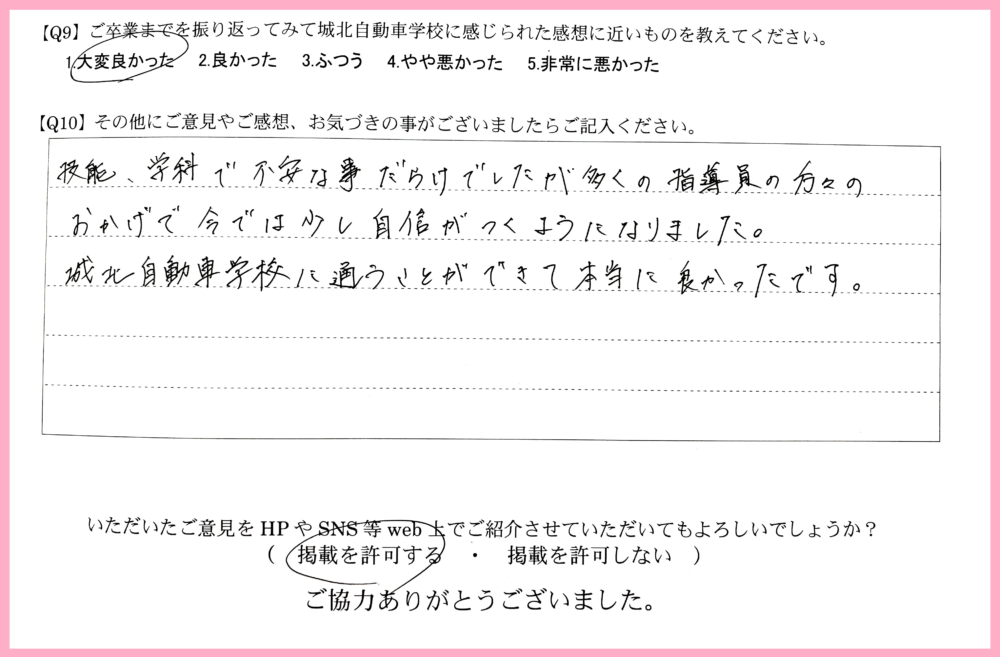 【Q9】ご卒業までを振り返ってみて城北自動車学校に感じられた感想に近いものを教えてください。
1.大変良かった 2.良かった 3.ふつう 4.やや悪かった 5.非常に悪かった
【Q10】その他にご意見やご感想、お気づきの事がございましたらご記入ください。
技能、学科で不安な事だらけでしたが多くの指導員の方々の
おかげで今では少し自信がつくようになりました。
城北自動車学校に通うことができて本当に良かったです。
いただいたご意見をHPやSNS等web上でご紹介させていただいてもよろしいでしょうか？
（ 掲載を許可する ・ 掲載を許可しない ）
ご協力ありがとうございました。